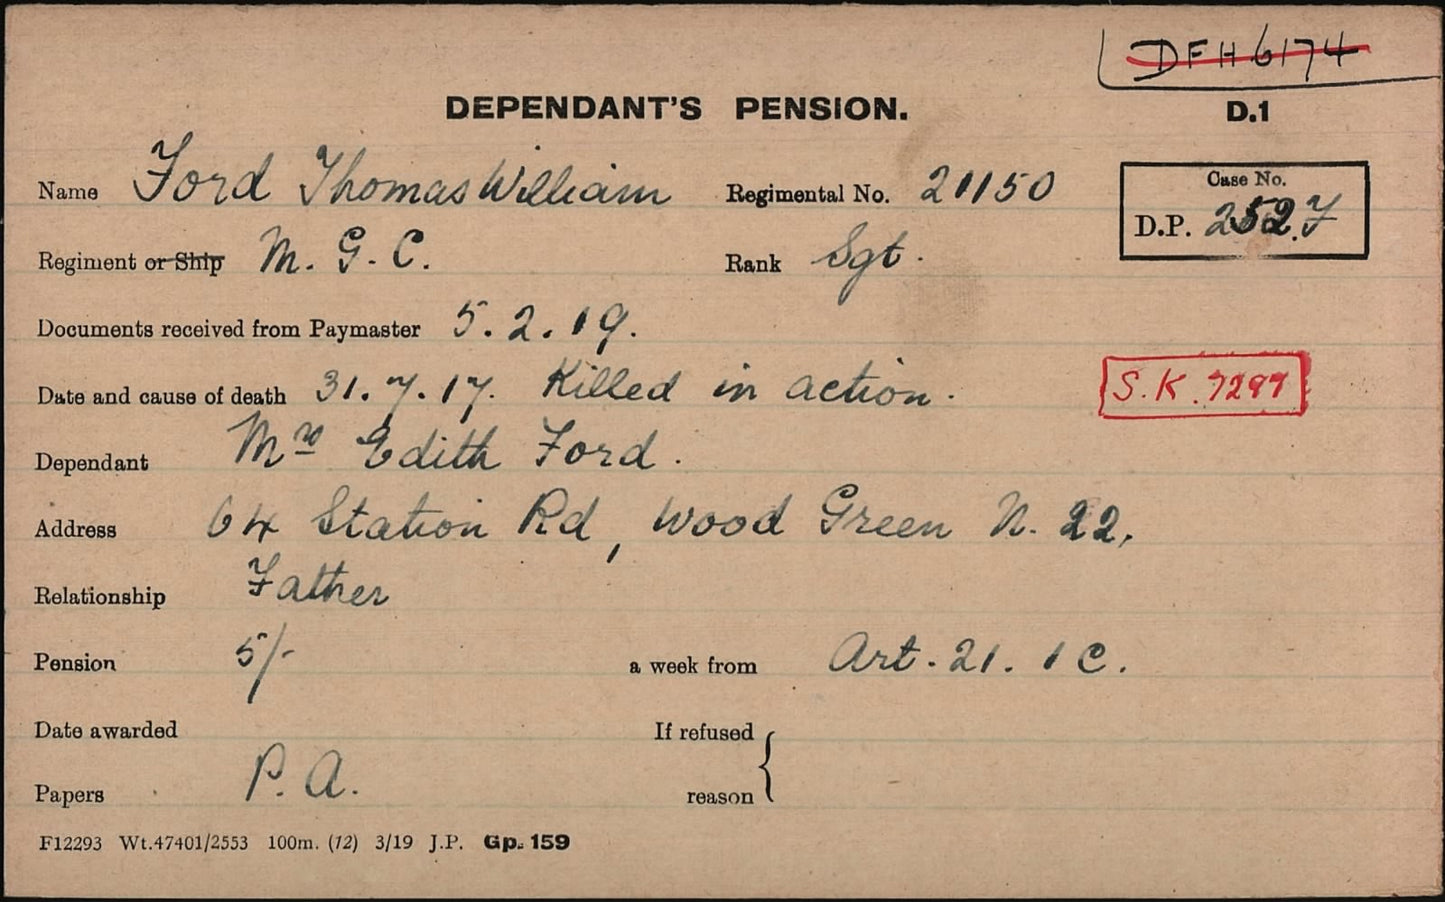 DFH 6174
DEPENDANT'S PENSION.
D.1
Name Ford Thomas William Regimental No. 21150
Case No.
D.P. 252.F
Regiment or Ship M. G. C. Rank Sgt.
Documents received from Paymaster 5.2.19.
Date and cause of death 31.7.17. Killed in action.
S.K. 7297
Dependant Mrs Edith Ford.
Address 64 Station Rd, Wood Green N. 22.
Relationship Father
Pension 5/- a week from Art. 21. 1 C.
Date awarded If refused
Papers P. A. reason
F12293 Wt.47401/2553 100m. (12) 3/19 J.P. Gp. 159